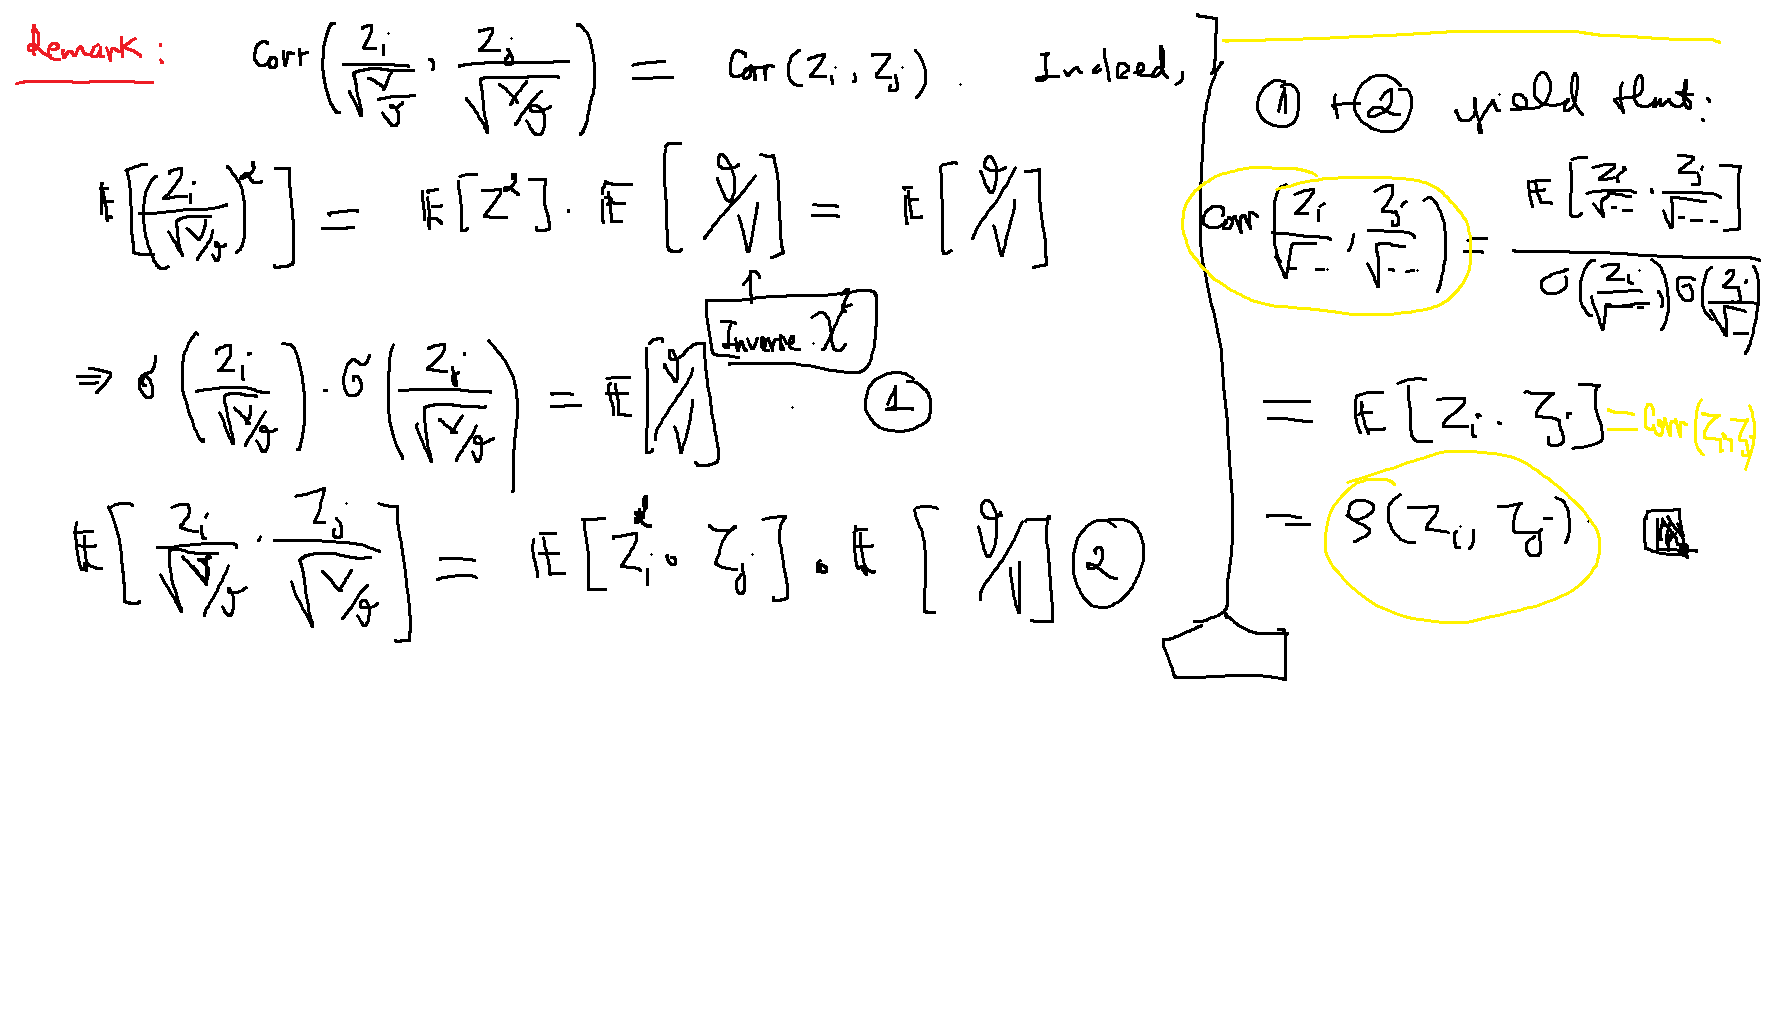 Remark : Corr( Z_i / √(V/ϑ) , Z_j / √(V/ϑ) ) = Corr(Z_i , Z_j) . Indeed,
E[ ( Z_i / √(V/ϑ) )^2 ] = E[Z^2] · E[ ϑ/V ] = E[ ϑ/V ]
↑
Inverse χ^2
⇒ σ( Z_i / √(V/ϑ) ) · σ( Z_j / √(V/ϑ) ) = E[ ϑ/V ] . ①
E[ Z_i / √(V/ϑ) · Z_j / √(V/ϑ) ] = E[ Z_i^2 · Z_j ] · E[ ϑ/V ] ②
① + ② yield that:
Corr( Z_i / √-- , Z_j / √-- ) = E[ Z_i / √-- · Z_j / √--- ] / σ( Z_i / √-- ) σ( Z_j / √-- )
= E[ Z_i · Z_j ] = Corr(Z_i, Z_j)
= ρ(Z_i, Z_j) .